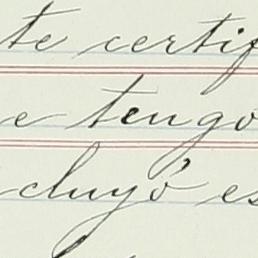 te certif
e tengo
cluyó es